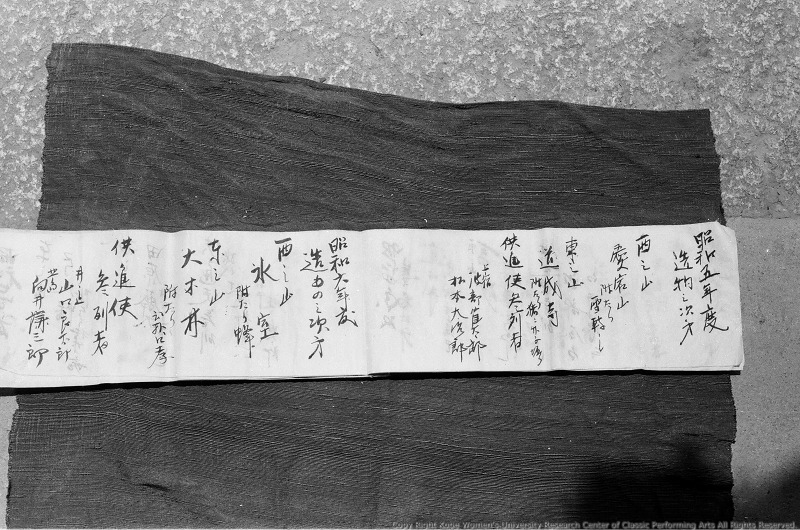 昭和五年度
造物之次方
西之山
愛宕山
附たり雪転し
東之山
道成寺
供進使参列者
渡部
松本大次郎
昭和六年度
造物之次方
西之山
氷室
附たり蝉
東之山
大木林
附たり
供進使
参列者
井ノ上
山口
向井謙三郎
Copy Right Kobe Women's University Research Center of Classic Performing Arts All Rights Reserved.